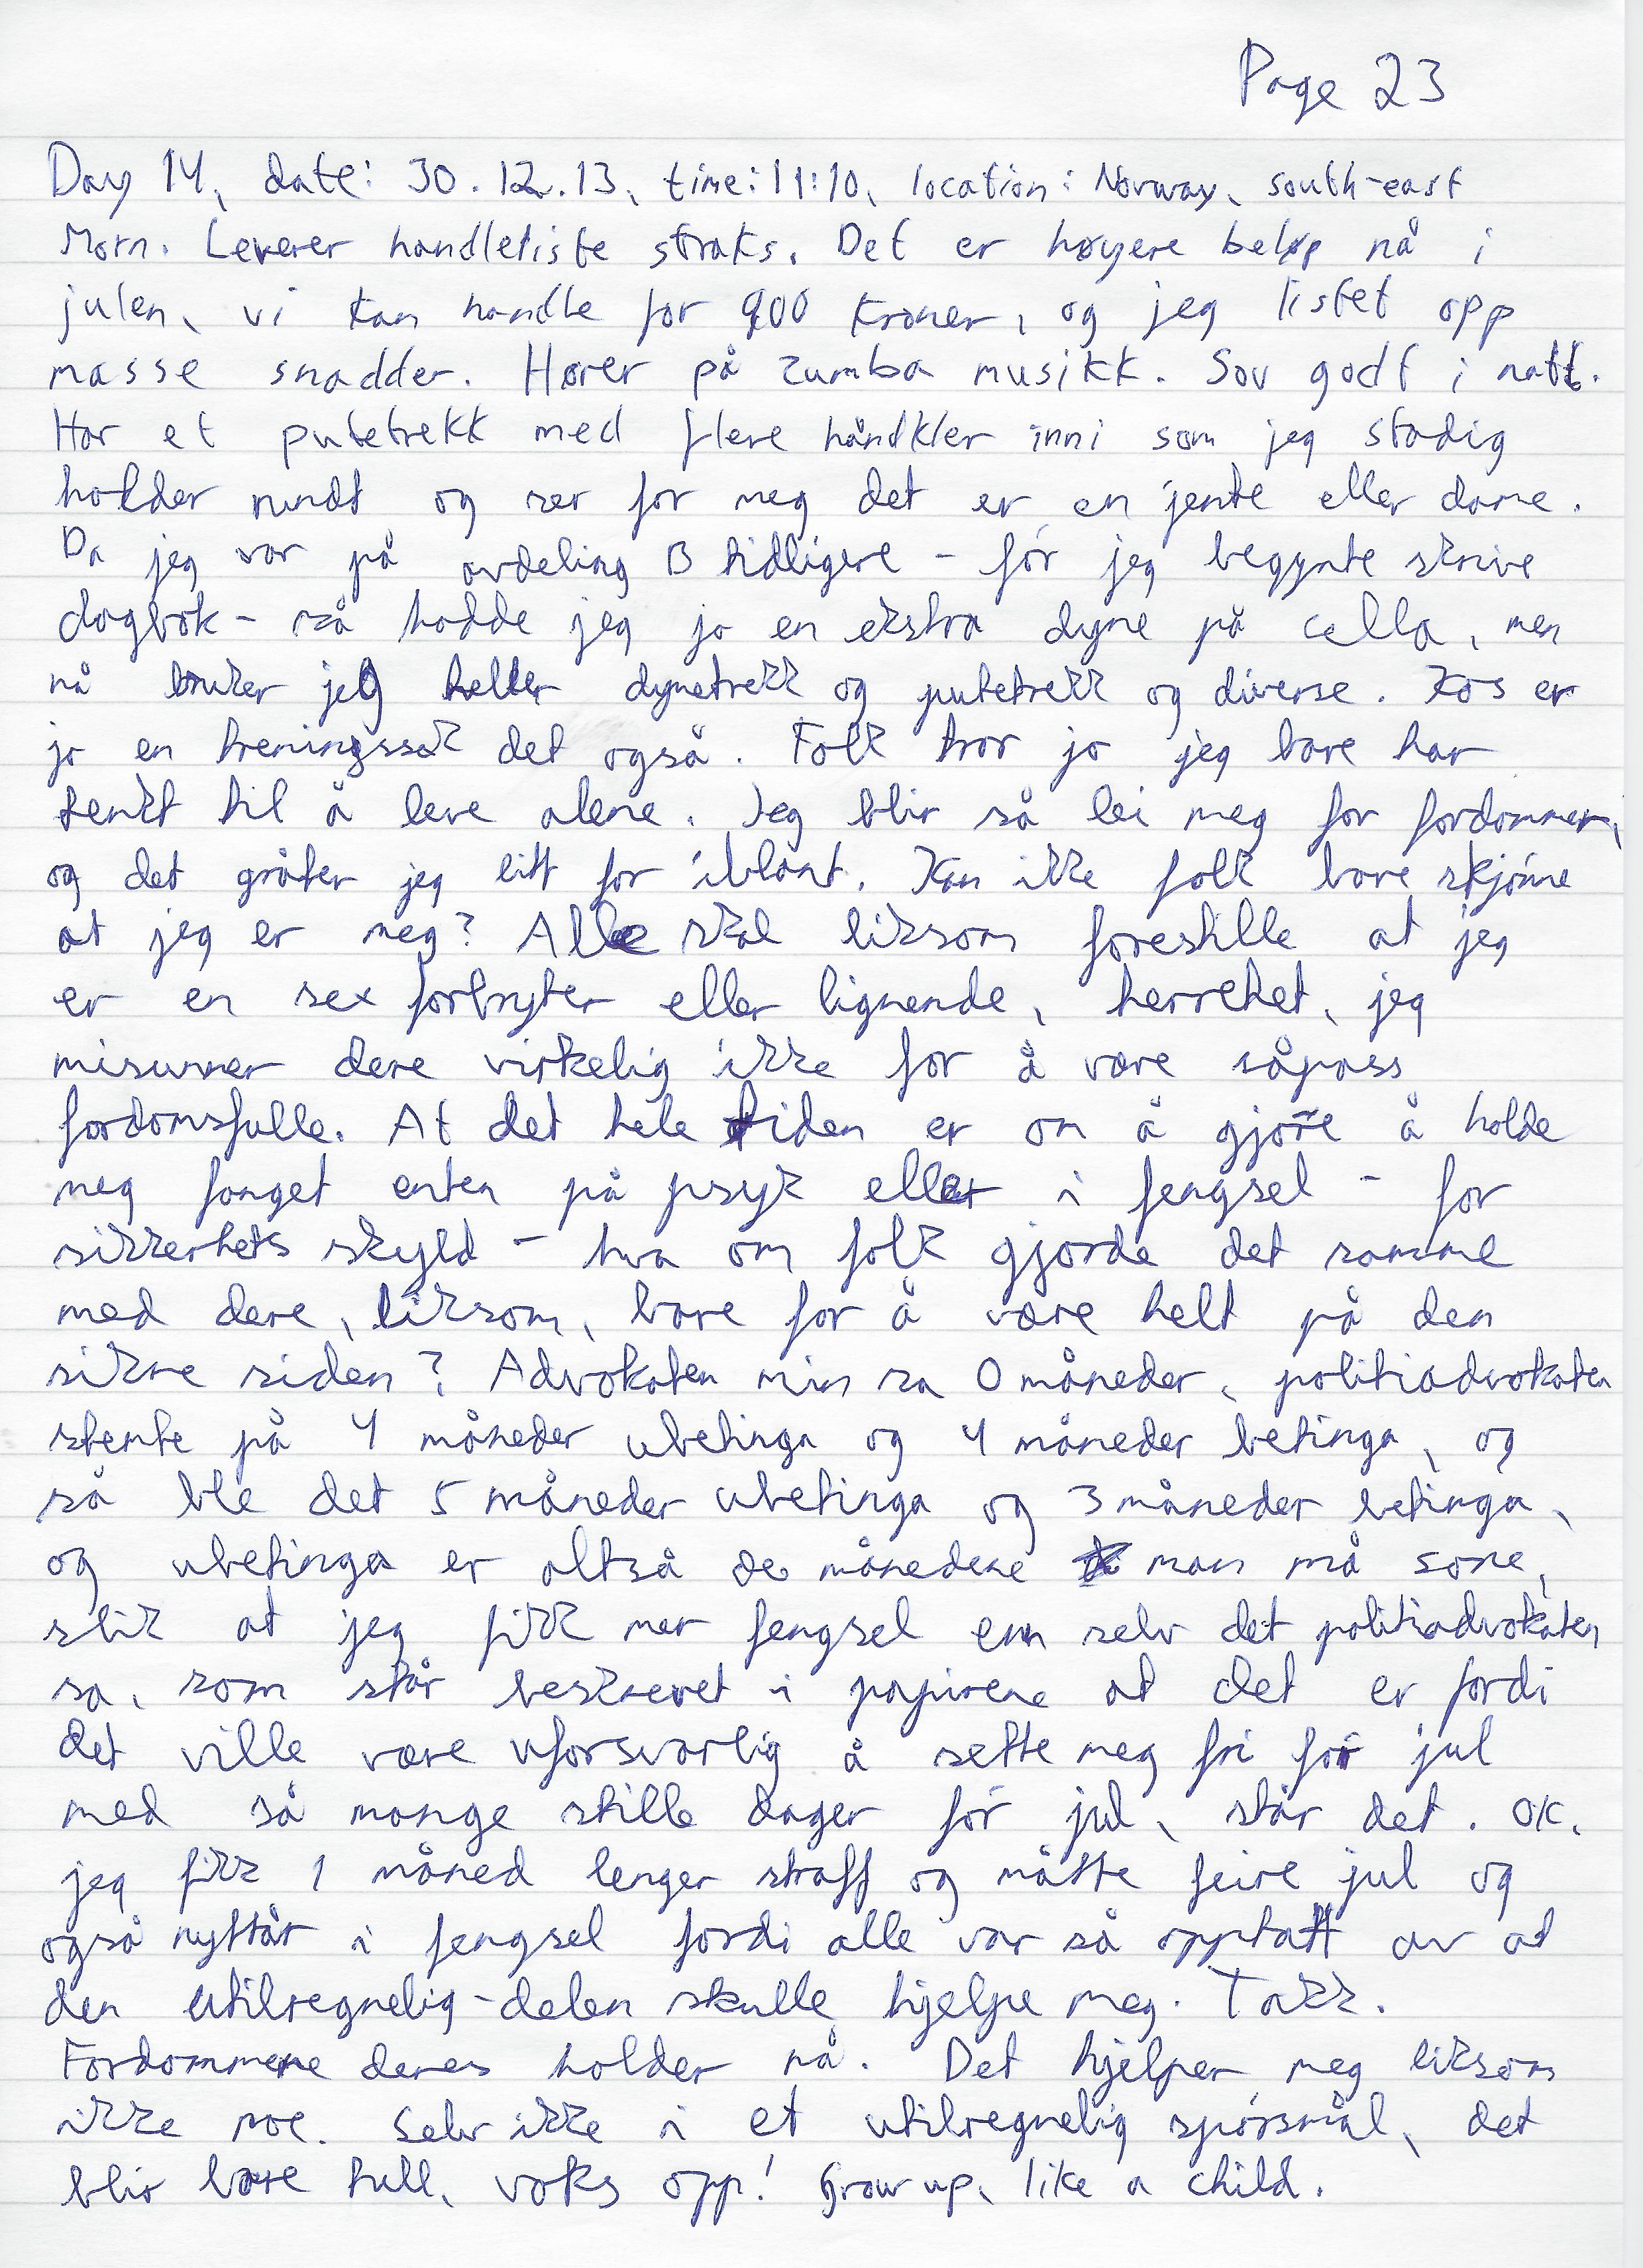 Page 23
Day 14, date: 30.12.13, time: 11:10, location: Norway, south-east
Morn. Leverer handleliste straks. Det er høyere beløp nå i
julen, vi kan handle for 900 kroner, og jeg listet opp
masse snadder. Hører på zumba musikk. Sov godt i natt.
Har et putetrekk med flere håndkler inni som jeg stadig
holder rundt og ser for meg det er en jente eller dame.
Da jeg var på avdeling B tidligere - før jeg begynte skrive
dagbok - så hadde jeg jo en ekstra dyne på cella, men
nå bruker jeg heller dynetrekk og putetrekk og diverse. Kos er
jo en treningssak det også. Folk tror jo jeg bare har
tenkt til å leve alene. Jeg blir så lei meg for fordommer,
og det gråter jeg litt for iblant. Kan ikke folk bare skjønne
at jeg er meg? Alle skal liksom forestille at jeg
er en sex forbryter eller lignende, herreket, jeg
misunner dere virkelig ikke for å være såpass
fordomsfulle. At det hele tiden er om å gjøre å holde
meg fanget enten på psyk eller i fengsel - for
sikkerhets skyld - hva om folk gjorde det samme
med dere, liksom, bare for å være helt på den
sikre siden? Advokaten min sa 0 måneder, politiadvokaten
stemte på 4 måneder ubetinga og 4 måneder betinga, og
så ble det 5 måneder ubetinga og 3 måneder betinga,
og ubetinga er altså de månedene man må sone,
slik at jeg fikk mer fengsel enn selv det politiadvokaten
sa, som står beskrevet i papirene at det er fordi
det ville være uforsvarlig å sette meg fri før jul
med så mange stille dager før jul, står det. OK,
jeg fikk 1 måned lenger straff og måtte feire jul og
også nyttår i fengsel fordi alle var så opptatt av at
den utilregnelig-delen skulle hjelpe meg. Takk.
Fordommene deres holder nå. Det hjelper meg liksom
ikke noe. Selv ikke i et utilregnelig spørsmål, det
blir bare tull, voks opp! Grow up, like a child.